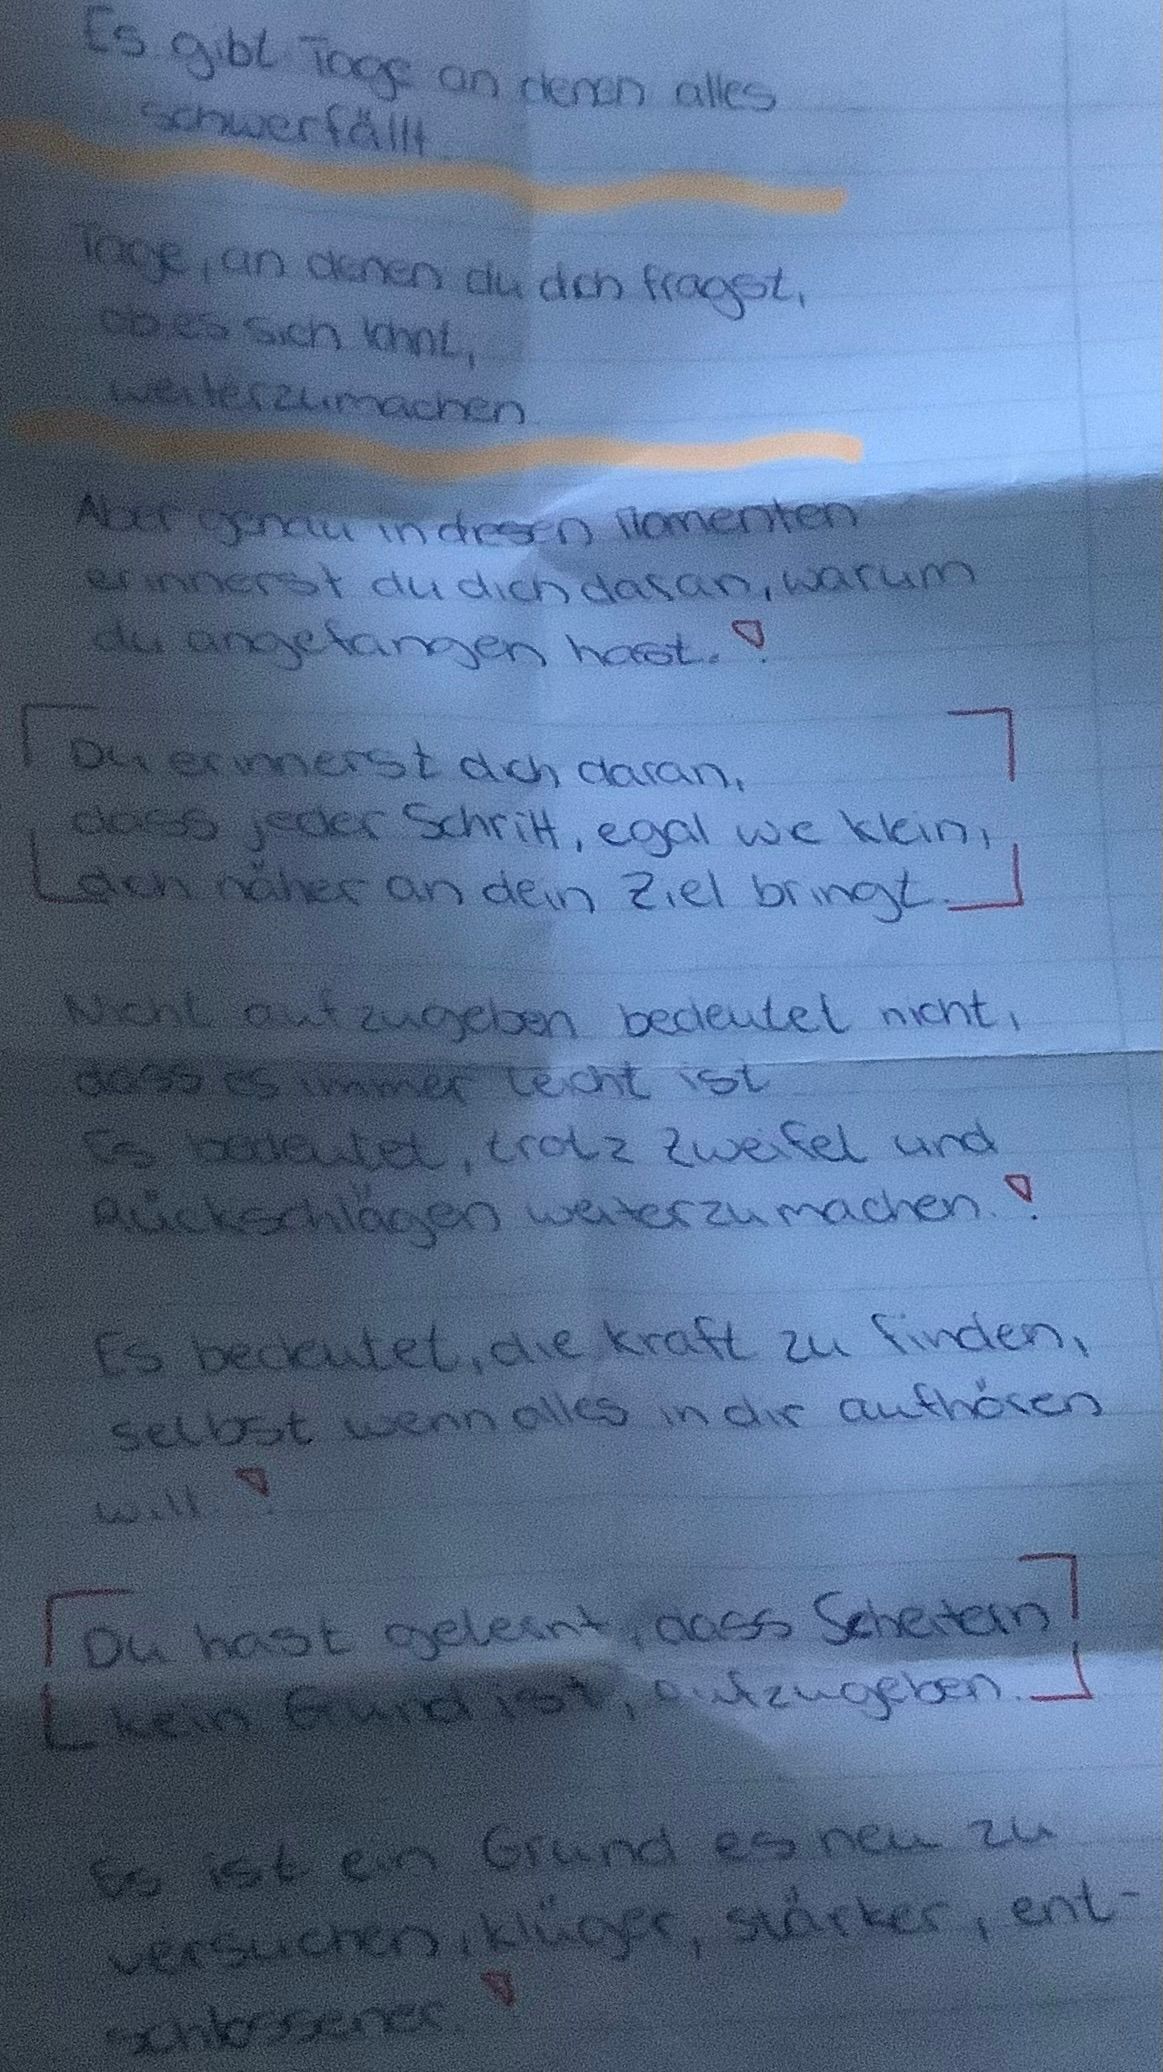 Es gibt Tage an denen alles
schwerfällt
Tage, an denen du dich fragst,
ob es sich lohnt,
weiterzumachen
Aber genau in diesen Momenten
erinnerst du dich daran, warum
du angefangen hast.!
Du erinnerst dich daran,
dass jeder Schritt, egal wie klein,
dich näher an dein Ziel bringt.
Nicht aufzugeben bedeutet nicht,
dass es immer leicht ist
Es bedeutet, trotz Zweifel und
Rückschlägen weiterzumachen.!
Es bedeutet, die Kraft zu finden,
selbst wenn alles in dir aufhören
will.!
Du hast gelernt, dass Scheitern
kein Grund ist, aufzugeben.
Es ist ein Grund es neu zu
versuchen, klüger, stärker, ent-
schlossener.!